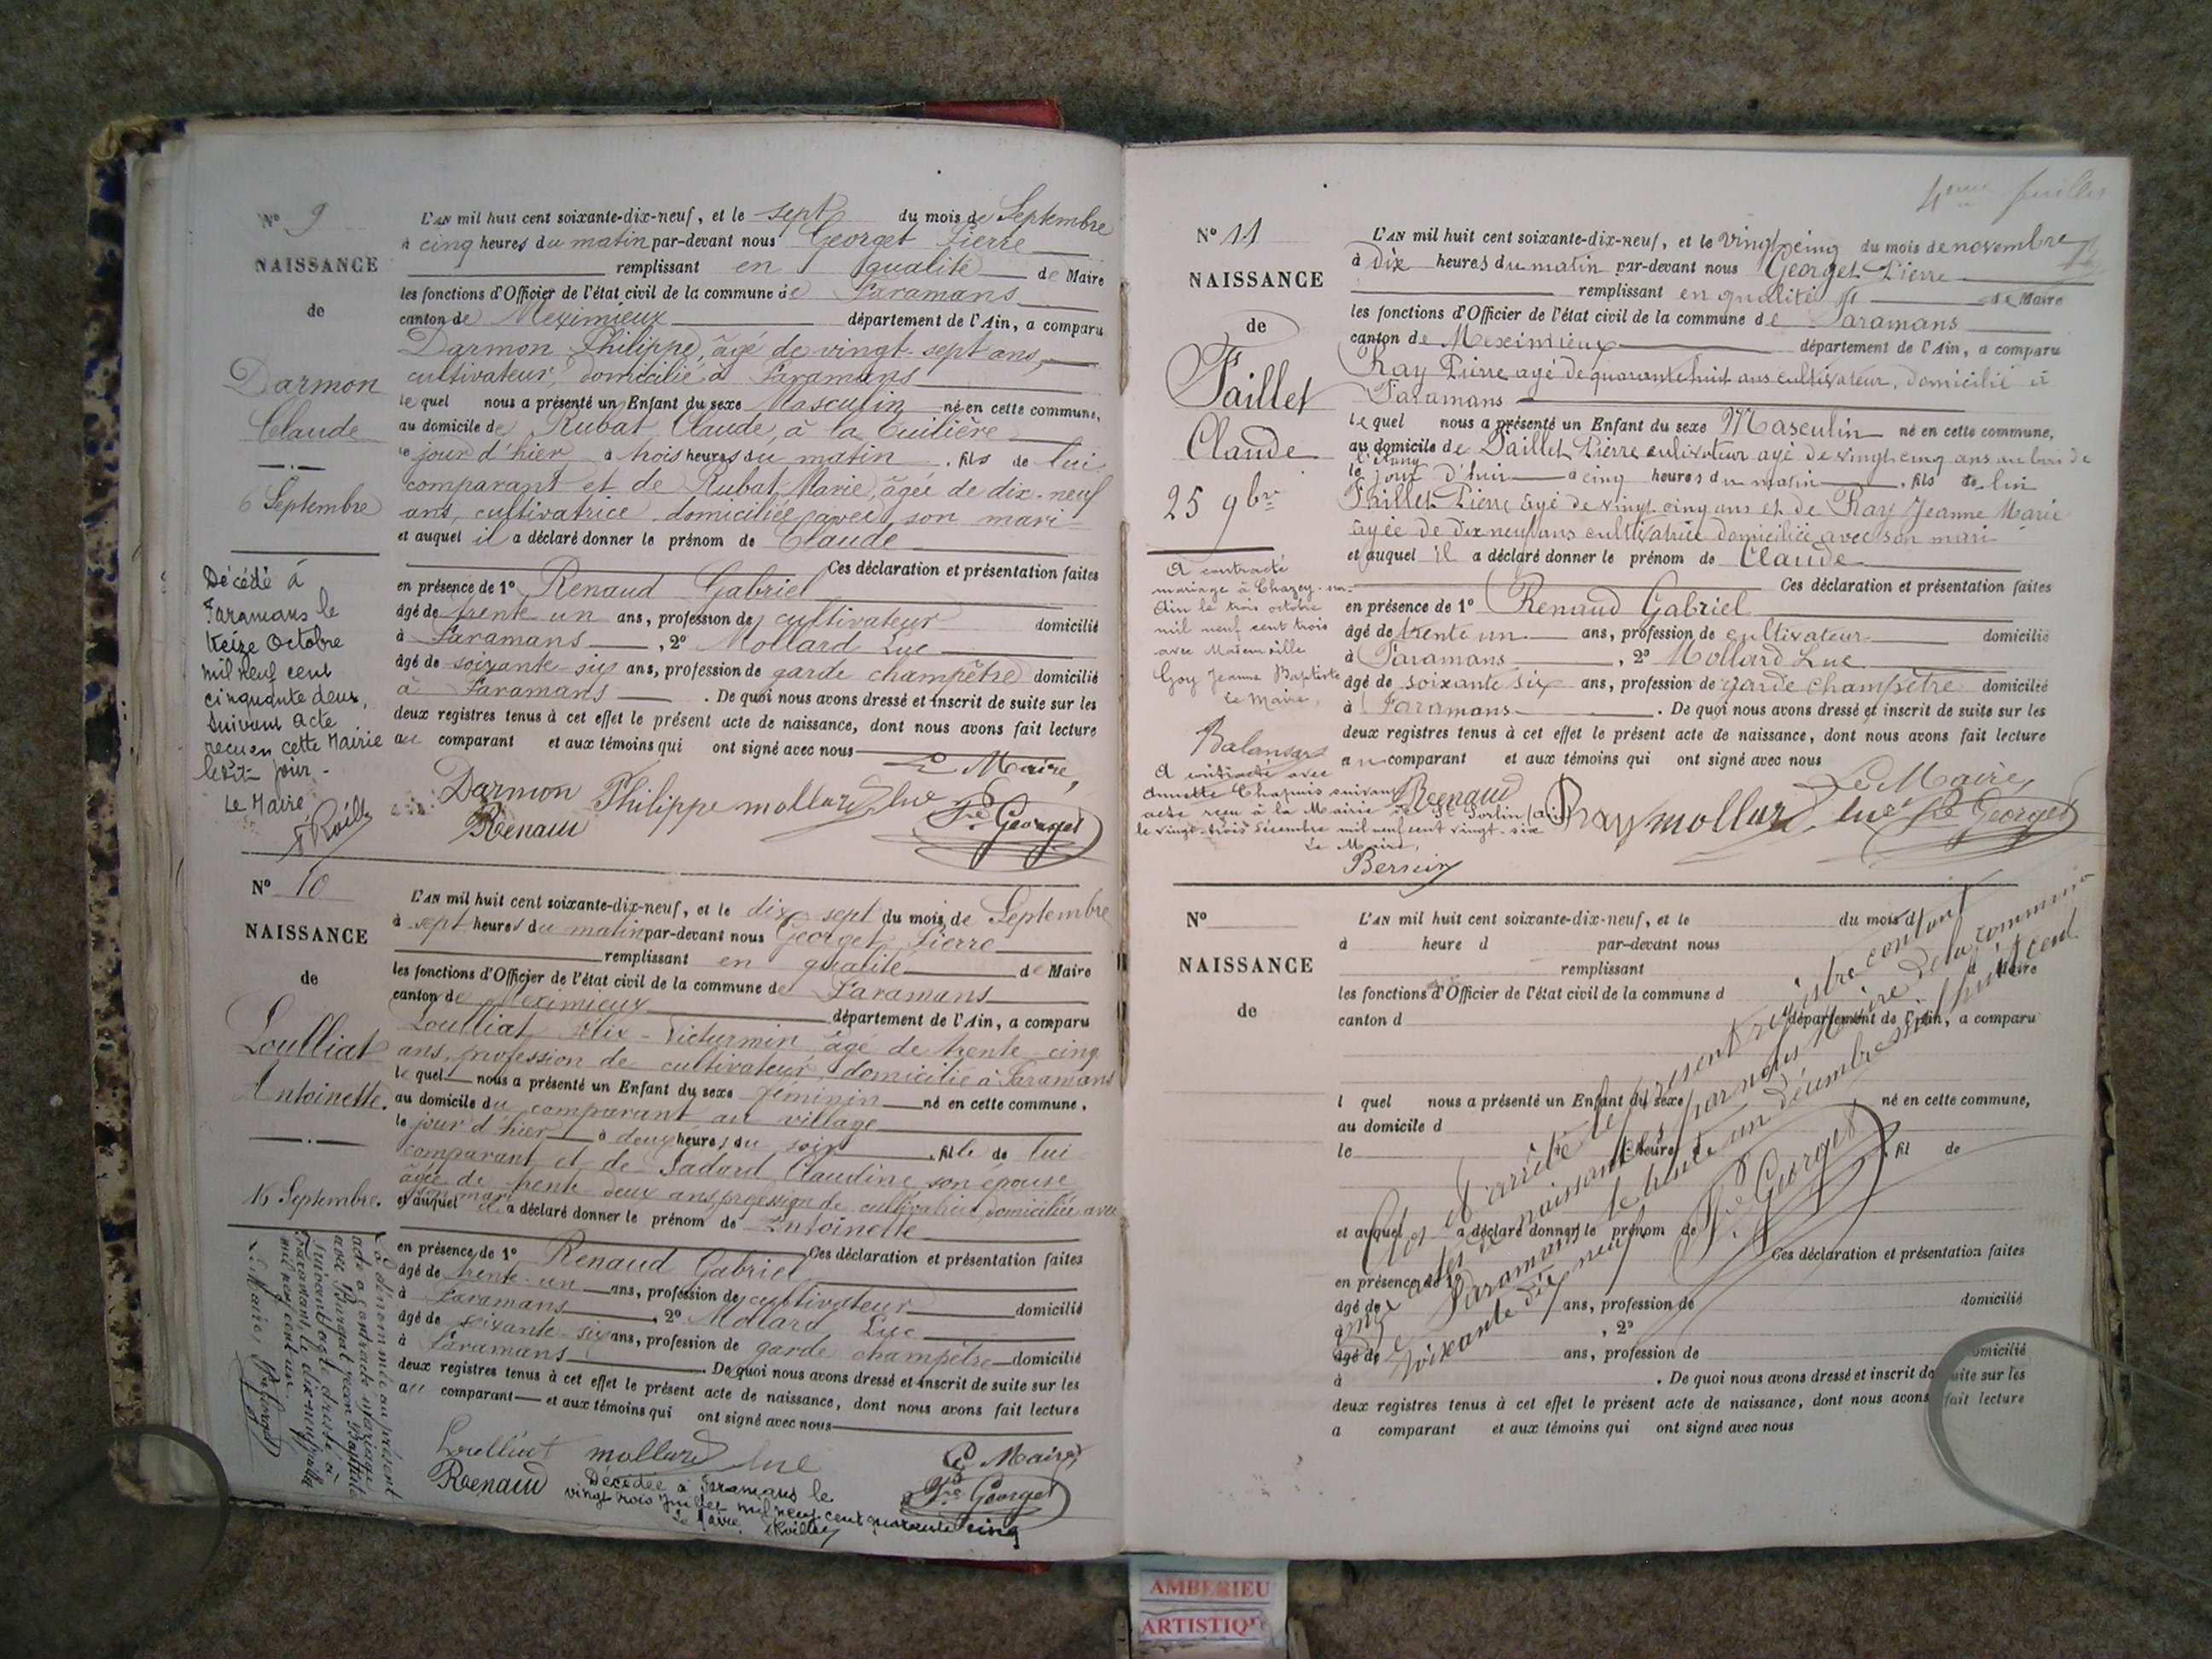 N° 9
NAISSANCE
de
Darmon
Claude
6 Septembre
Décédé à
Faramans le
treize Octobre
mil neuf cent
cinquante deux,
Suivant acte
reçu en cette Mairie
ledit jour -
Le Maire
L'AN mil huit cent soixante-dix-neuf, et le sept du mois de Septembre
à cinq heures du matin par-devant nous Georget Pierre
remplissant en qualité de Maire
les fonctions d'Officier de l'état civil de la commune de Faramans
canton de Meximieux département de l'Ain, a comparu
Darmon Philippe, âgé de vingt-sept ans,
cultivateur, domicilié à Faramans
le quel nous a présenté un Enfant du sexe Masculin né en cette commune,
au domicile de Rubat Claude, à la Tuilière
le jour d'hier à trois heures du matin, fils de lui
comparant et de Rubat Marie, âgée de dix-neuf
ans, cultivatrice domiciliée avec son mari
et auquel il a déclaré donner le prénom de Claude
Ces déclaration et présentation faites
en présence de 1° Renaud Gabriel
âgé de trente un ans, profession de cultivateur domicilié
à Faramans, 2° Mollard Luc
âgé de soixante-six ans, profession de garde champêtre domicilié
à Faramans. De quoi nous avons dressé et inscrit de suite sur les
deux registres tenus à cet effet le présent acte de naissance, dont nous avons fait lecture
au comparant et aux témoins qui ont signé avec nous
Le Maire,
Darmon Philippe mollard luc
Renaud Pre Georget
N° 10
NAISSANCE
de
Loulliat
Antoinette.
16 Septembre.
La dénommée au présent
acte a contracté mariage
avec
Suivant acte dressé à
Faramans, le dix-neuf
mil neuf cent un.
Le Maire,
L'AN mil huit cent soixante-dix-neuf, et le dix sept du mois de Septembre
à sept heures du matin par-devant nous Georget Pierre
remplissant en qualité de Maire
les fonctions d'Officier de l'état civil de la commune de Faramans
canton de Meximieux département de l'Ain, a comparu
Loulliat Félix-Victurmin âgé de trente cinq
ans, profession de cultivateur, domicilié à Faramans
le quel nous a présenté un Enfant du sexe féminin né en cette commune,
au domicile du comparant au village
le jour d'hier à deux heures du soir, fille de lui
comparant et de Sadard Claudine son épouse
âgée de trente deux ans profession de cultivatrice domiciliée avec
son mari
et auquel il a déclaré donner le prénom de Antoinette
Ces déclaration et présentation faites
en présence de 1° Renaud Gabriel
âgé de trente-un ans, profession de cultivateur
à Faramans, 2° Mollard Luc domicilié
âgé de soixante-six ans, profession de garde champêtre domicilié
à Faramans. De quoi nous avons dressé et inscrit de suite sur les
deux registres tenus à cet effet le présent acte de naissance, dont nous avons fait lecture
au comparant et aux témoins qui ont signé avec nous
Loulliat mollard luc Le Maire
Renaud Pre Georget
Décédée à Faramans le
vingt trois Juillet mil neuf cent quarante cinq
Le Maire
4ème feuillet
N° 11
NAISSANCE
de
Faillet
Claude
25 9bre
A contracté
mariage à Chazey-sur-
Ain le trois octobre
mil neuf cent trois
avec Mademoiselle
Goy Jeanne Baptiste
Le Maire,
A contracté avec
Annette Chapuis suivant
acte reçu à la Mairie de St Sorlin (ain)
le vingt-trois décembre mil neuf cent vingt-six
Le Maire,
Bernin
L'AN mil huit cent soixante-dix-neuf, et le vingt cinq du mois de novembre
à dix heures du matin par-devant nous Georget Pierre
remplissant en qualité de Maire
les fonctions d'Officier de l'état civil de la commune de Faramans
canton de Meximieux département de l'Ain, a comparu
Ray Pierre agé de quarante huit ans cultivateur, domicilié à
Faramans
le quel nous a présenté un Enfant du sexe Masculin né en cette commune,
au domicile de Faillet Pierre cultivateur agé de vingt cinq ans au bois de
l'étang
le jour d'hui à cinq heures du matin, fils de lui
Faillet Pierre agé de vingt cinq ans et de Ray Jeanne Marie
agée de dix neuf ans cultivatrice domiciliée avec son mari
et auquel il a déclaré donner le prénom de Claude
Ces déclaration et présentation faites
en présence de 1° Renaud Gabriel
âgé de trente un ans, profession de cultivateur domicilié
à Faramans, 2° Mollard Luc
âgé de soixante six ans, profession de garde champêtre domicilié
à Faramans. De quoi nous avons dressé et inscrit de suite sur les
deux registres tenus à cet effet le présent acte de naissance, dont nous avons fait lecture
au comparant et aux témoins qui ont signé avec nous
Le Maire,
Renaud Ray mollard luc Pre Georget
N°
NAISSANCE
de
L'AN mil huit cent soixante-dix-neuf, et le du mois d
à heure d par-devant nous
remplissant d Maire
les fonctions d'Officier de l'état civil de la commune d
canton d département de l'Ain, a comparu
l quel nous a présenté un Enfant du sexe né en cette commune,
au domicile d
le à heure d fil de
et auquel a déclaré donner le prénom de
Ces déclaration et présentation faites
en présence de 1°
âgé de ans, profession de domicilié
à , 2°
âgé de ans, profession de domicilié
à . De quoi nous avons dressé et inscrit de suite sur les
deux registres tenus à cet effet le présent acte de naissance, dont nous avons fait lecture
a comparant et aux témoins qui ont signé avec nous
Clos et arrêté le présent registre contenant
onze actes de naissances par nous Maire de la commune
de Faramans le trente un décembre mil huit cent
soixante dix neuf
Pre Georget
AMBERIEU
ARTISTIQUE